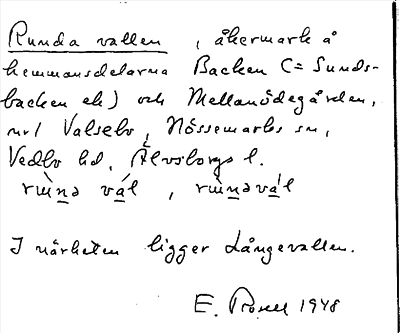 Runda vallen, åkermark å
hemmansdelarna Backen (= Sunds-
backen ek) och Mellanödegården,
nr 1 Valsebo, Nössemarks sn,
Vedbo hd, Älvsborgs l.
I närheten ligger Långevallen.
E. 1948